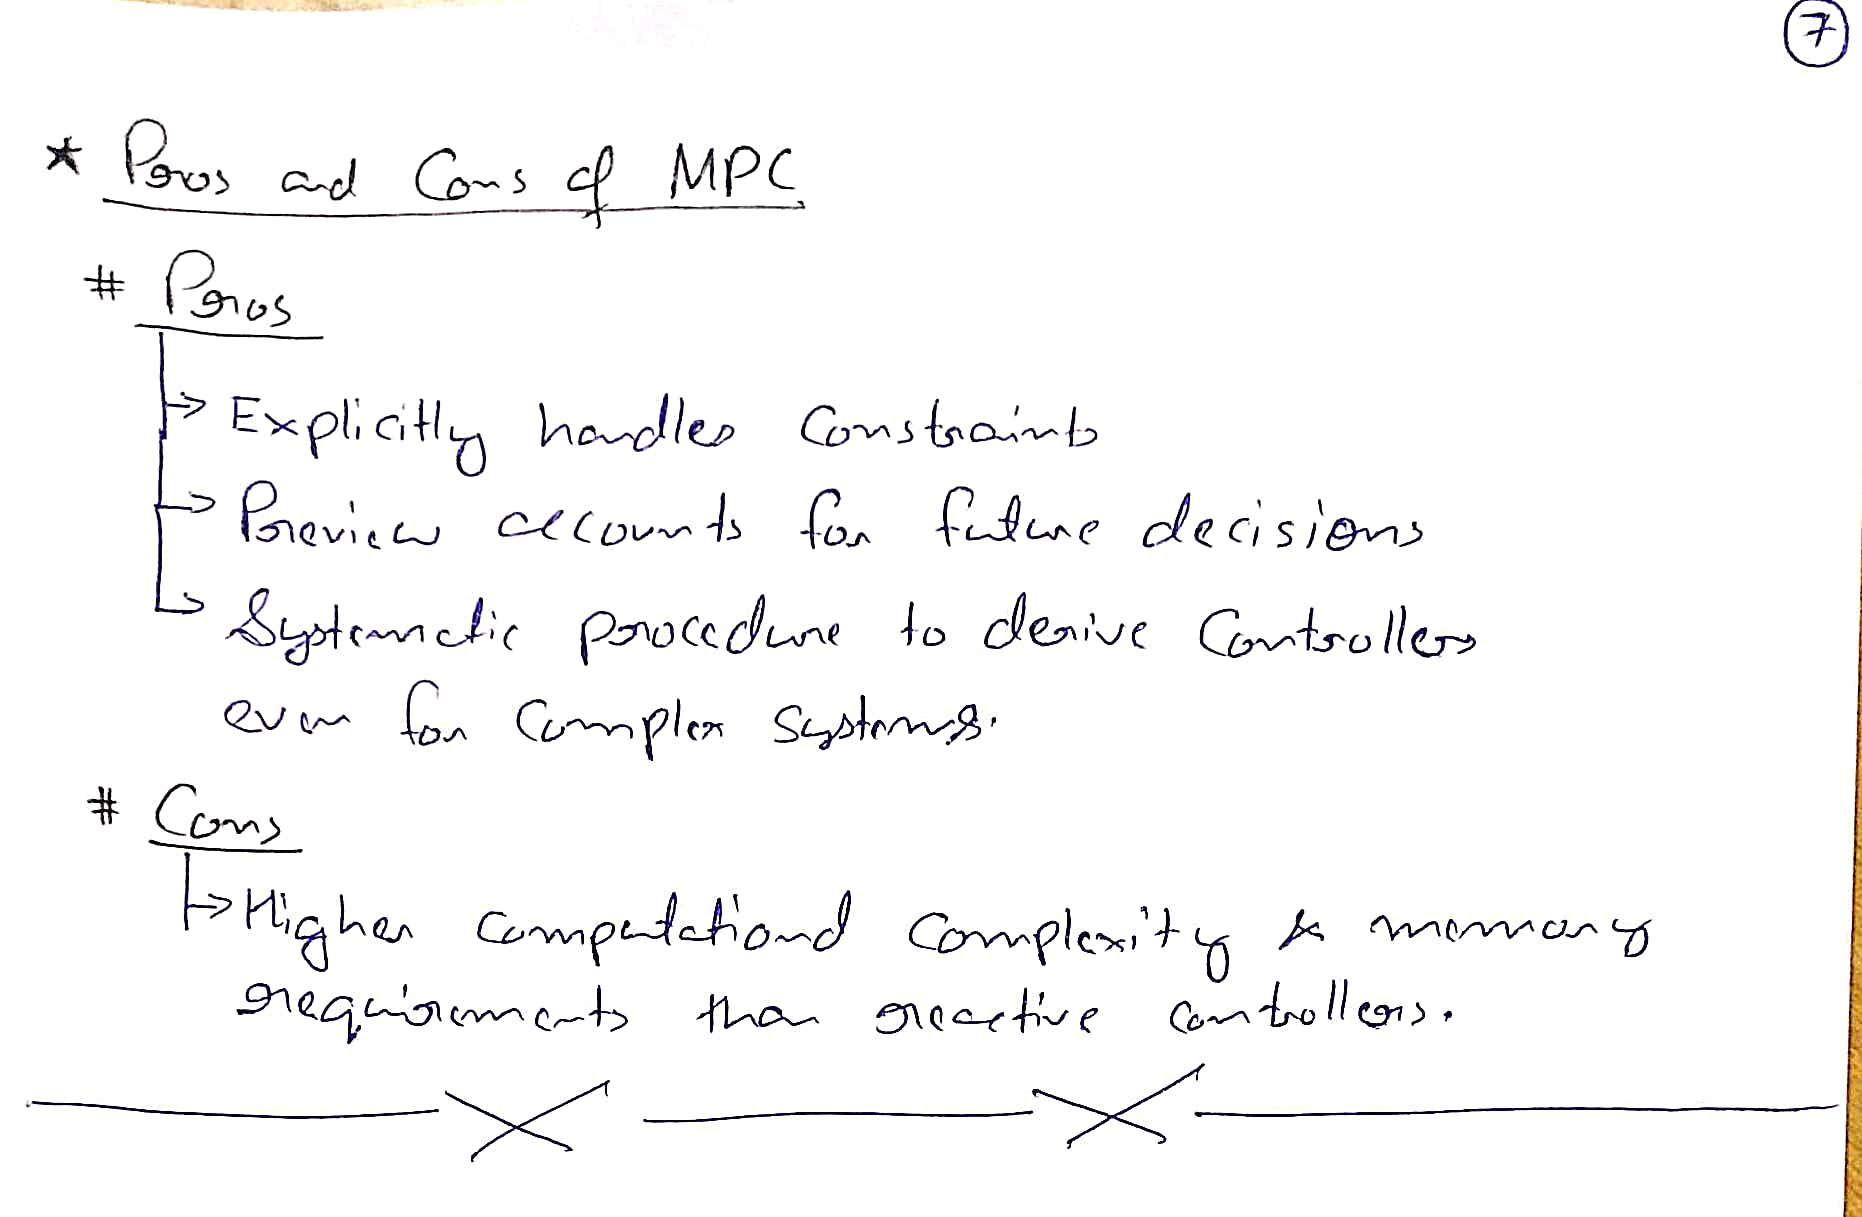 7
* Pros and Cons of MPC
# Pros
→ Explicitly handles Constraints
→ Preview accounts for future decisions
↳ Systematic procedure to derive Controllers
even for Complex Systems.
# Cons
→ Higher computational complexity & memory
requirements than reactive controllers.